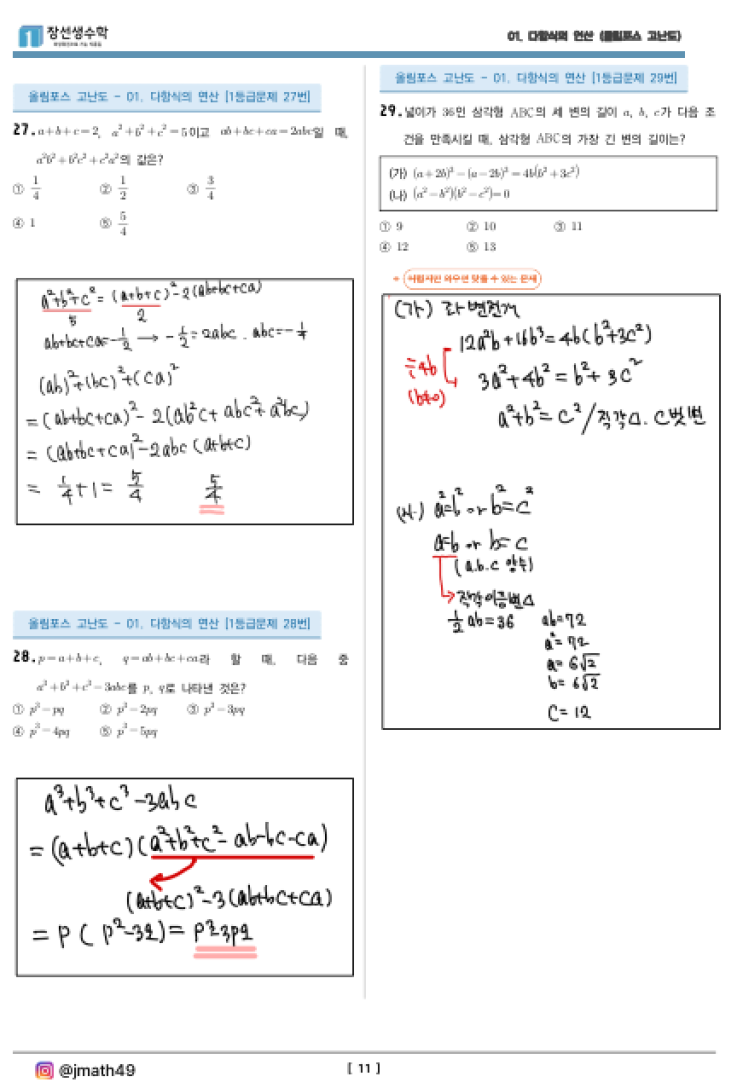 장선생수학
01. 다항식의 연산 (올림포스 고난도)
올림포스 고난도 - 01. 다항식의 연산 [1등급문제 27번]
27. a+b+c=2, a²+b²+c²=5이고 ab+bc+ca=2abc일 때,
a²b²+b²c²+c²a²의 값은?
① 1/4 ② 1/2 ③ 3/4
④ 1 ⑤ 5/4
a²+b²+c² = (a+b+c)²-2(ab+bc+ca)
5 2
ab+bc+ca=-1/2 → -1/2=2abc. abc=-1/4
(ab)²+(bc)²+(ca)²
=(ab+bc+ca)²-2(ab²c+abc²+a²bc)
=(ab+bc+ca)²-2abc(a+b+c)
= 1/4+1= 5/4 5/4
올림포스 고난도 - 01. 다항식의 연산 [1등급문제 28번]
28. p=a+b+c, q=ab+bc+ca라 할 때, 다음 중
a³+b³+c³-3abc를 p, q로 나타낸 것은?
① p³-pq ② p³-2pq ③ p³-3pq
④ p³-4pq ⑤ p³-5pq
a³+b³+c³-3abc
=(a+b+c)(a²+b²+c²-ab-bc-ca)
(a+b+c)²-3(ab+bc+ca)
=p(p²-3q)=p³-3pq
올림포스 고난도 - 01. 다항식의 연산 [1등급문제 29번]
29. 넓이가 36인 삼각형 ABC의 세 변의 길이 a, b, c가 다음 조
건을 만족시킬 때, 삼각형 ABC의 가장 긴 변의 길이는?
(가) (a+2b)³-(a-2b)³=4b(b²+3c²)
(나) (a²-b²)(b²-c²)=0
① 9 ② 10 ③ 11
④ 12 ⑤ 13
(가) 좌변전개
12a²b+16b³=4b(b²+3c²)
÷4b
(b≠0)
3a²+4b²=b²+3c²
a²+b²=c²/직각△. c빗변
(나) a²=b² or b²=c²
a=b or b=c
(a.b.c 양수)
직각이등변△
1/2ab=36 ab=72
a²=72
a=6√2
b=6√2
c=12
@jmath49
[ 11 ]